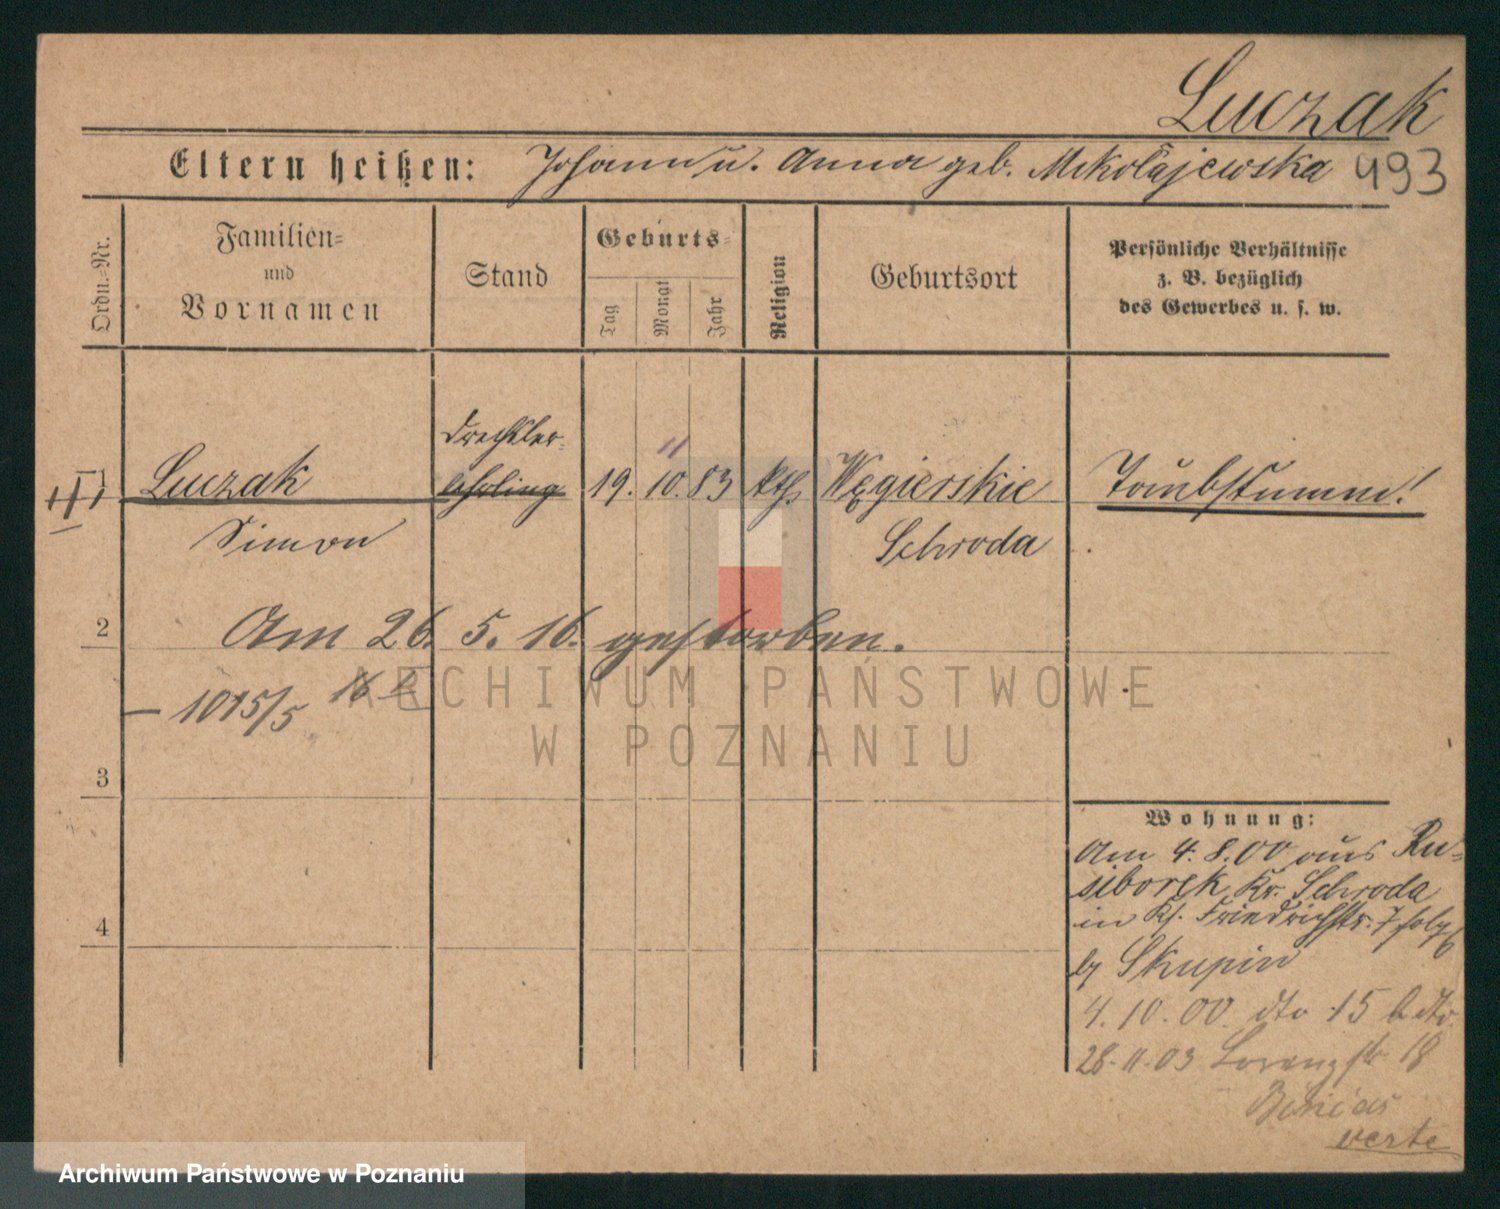 Luczak
Eltern heißen: Johann u. Anna geb. Mikołajewska 493
Ordn.-Nr.
Familien-
und
Vornamen
Stand
Geburts-
Tag
Monat
Jahr
Religion
Geburtsort
Persönliche Verhältnisse
z. B. bezüglich
des Gewerbes u. s. w.
Drechsler-
11
Luczak lehrling 19. 10. 83 kth. Węgierskie Taubstumm!
Simon Schroda
2 Am 26. 5. 16. gestorben.
1015/5 16
3
Wohnung:
Am 4. 8. 00 aus Ru-
siborek Kr. Schroda
in Friedrichstr. 7
4
b/ Skupin
4. 10. 00. dto 15 b dto
28. 11. 03 Lorenzstr 18
verte
ARCHIWUM PAŃSTWOWE
W POZNANIU
Archiwum Państwowe w Poznaniu